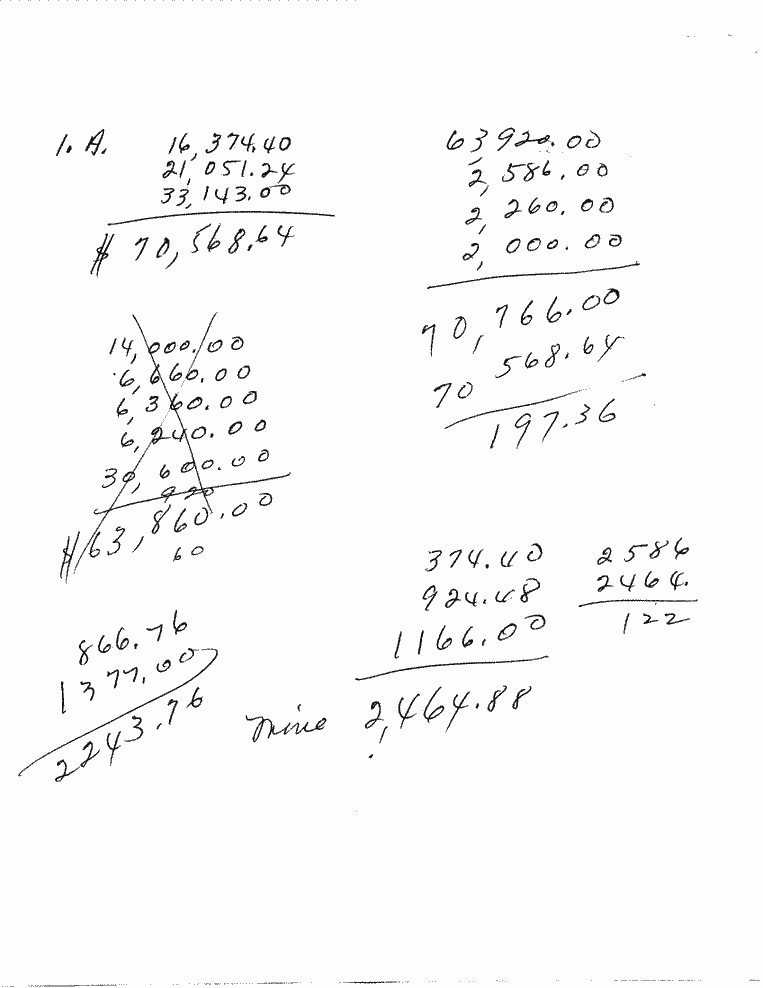 1. A. 16,374.40
21,051.24
33,143.00
$ 70,568.64
63920.00
2,586.00
2,260.00
2,000.00
70,766.00
70 568.64
197.36
14,000.00
6,660.00
6,360.00
6,240.00
30,600.00
920
$ 63,860.00
60
374.40
924.48
1166.00
mine 2,464.88
2586
2464.
122
866.76
1377.00
2243.76